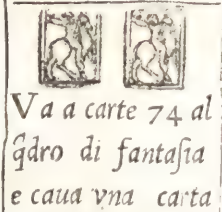 Va a carte 74 al
q̃dro di fantaſia
e caua vna carta